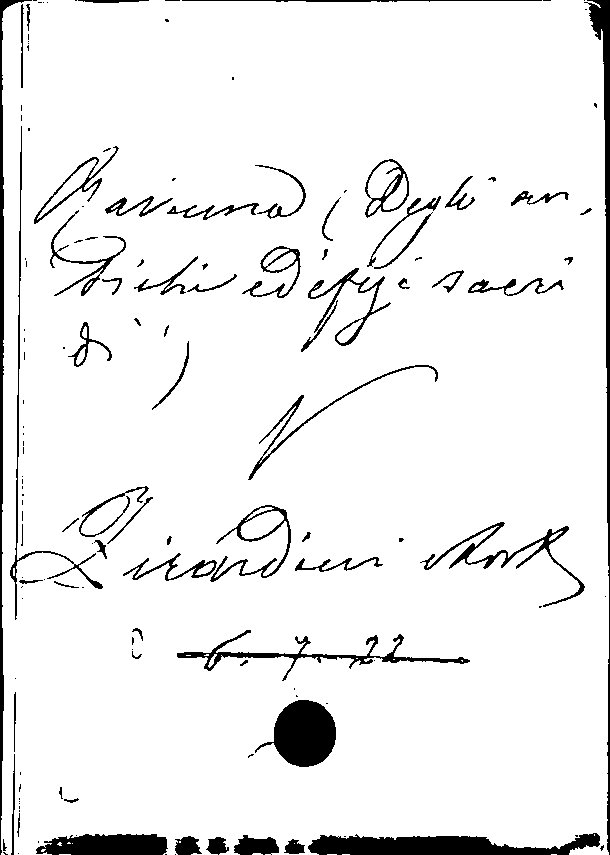 Ravenna (Degli an-
tichi edifizi sacri
di)
V
Zirardini Ant.
C 6. 7. 22